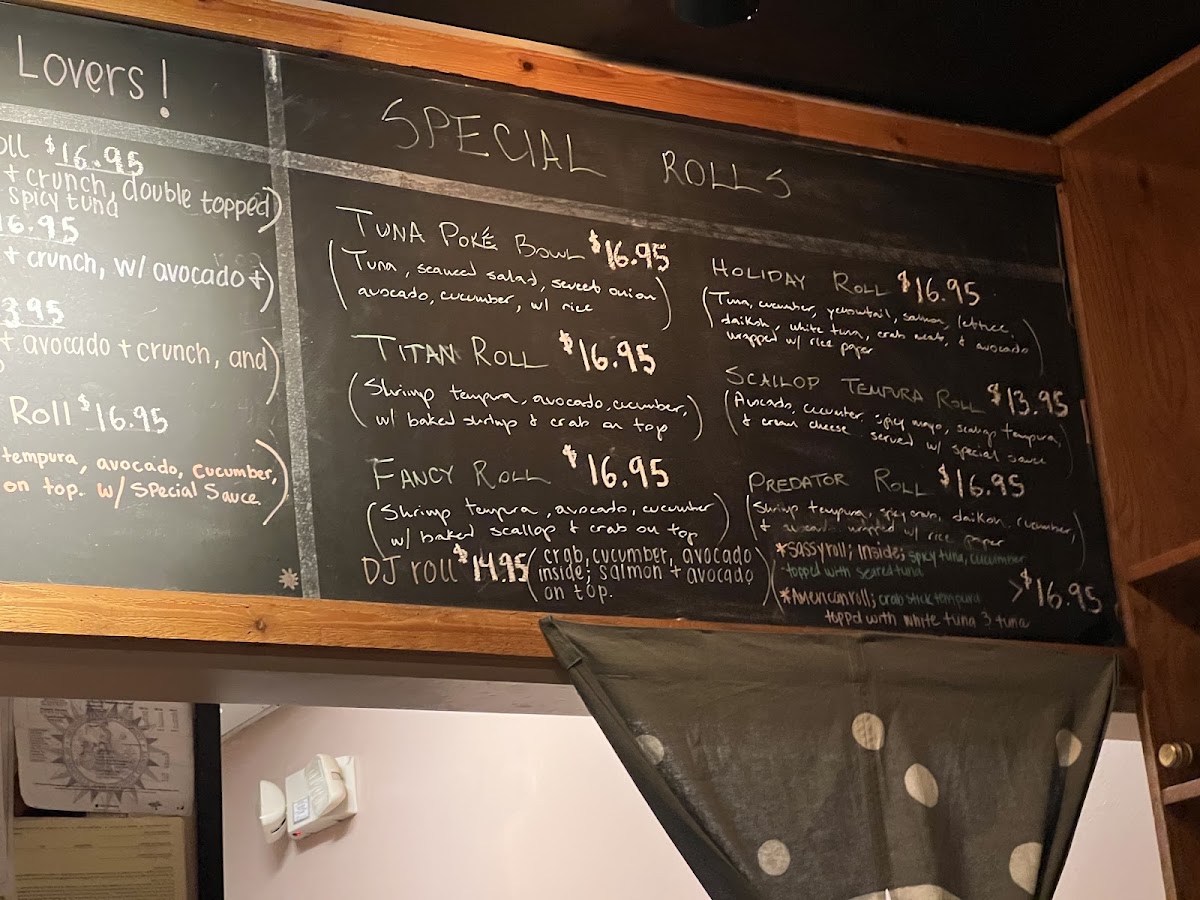 Lovers!
oll $16.95
+ crunch, double topped)
spicy tuna
16.95
+ crunch, w/ avocado +)
3.95
+ avocado + crunch, and)
Roll $16.95
tempura, avocado, cucumber,
on top. w/ Special Sauce)
SPECIAL ROLLS
TUNA POKÉ BOWL $16.95
(Tuna, seaweed salad, sweet onion
avocado, cucumber, w/ rice)
TITAN ROLL $16.95
(Shrimp tempura, avocado, cucumber,
w/ baked shrimp & crab on top)
FANCY ROLL $16.95
(Shrimp tempura, avocado, cucumber
w/ baked scallop & crab on top)
DJ roll $14.95 (crab, cucumber, avocado
inside; salmon + avocado
on top.)
HOLIDAY ROLL $16.95
(Tuna, cucumber, yellowtail, salmon, lettuce,
daikon, white tuna, crab meat, & avocado
wrapped w/ rice paper)
SCALLOP TEMPURA ROLL $13.95
(Avocado, cucumber, spicy mayo, scallop tempura,
& cream cheese served w/ special sauce)
PREDATOR ROLL $16.95
(Shrimp tempura, spicy crab, daikon, cucumber,
& avocado wrapped w/ rice paper)
*sassy roll; inside; spicy tuna, cucumber
topped with seared tuna
*American roll; crab stick tempura >$16.95
toppd with white tuna 3 tuna